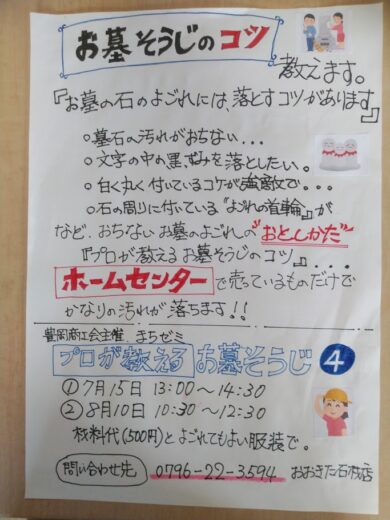 お墓そうじのコツ
教えます。
『お墓の石のよごれには、落とすコツがあります』
○墓石の汚れがおちない...
○文字の中の黒ずみを落としたい。
○白く丸く付いているコケが強敵で...
○石の周りに付いている"よごれの首輪"が
など、おちないお墓のよごれの"おとしかた"
『プロが教えるお墓そうじのコツ』...
ホームセンターで売っているものだけで
かなりの汚れが落ちます!!
豊岡商工会主催 まちゼミ
プロが教えるお墓そうじ 4
①7月15日 13:00~14:30
②8月10日 10:30~12:30
材料代(500円)とよごれてもよい服装で。
問い合わせ先 0796-22-3594 おおきた石材店